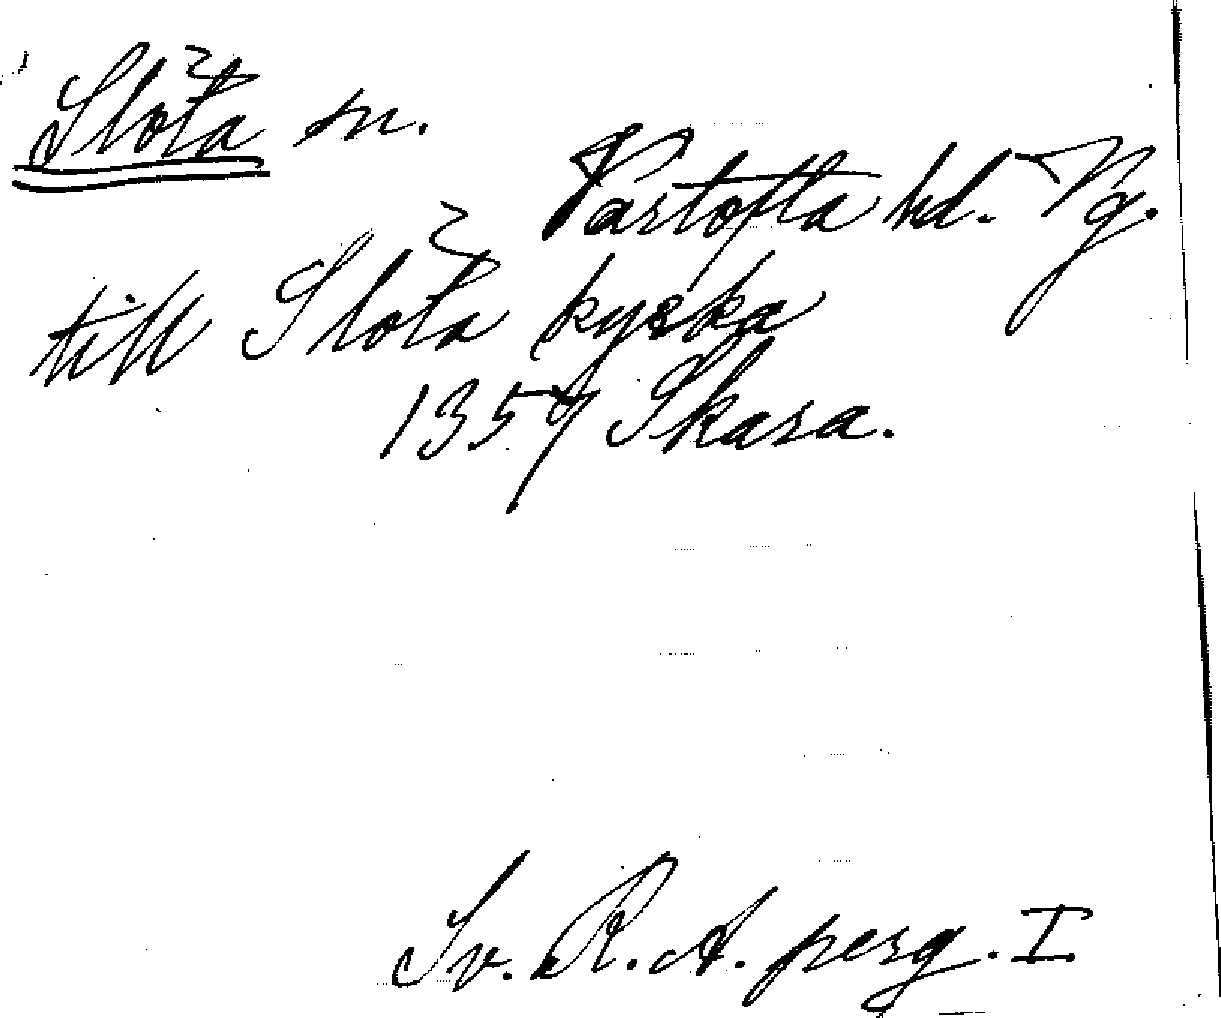 Slöta sn.
Vartofta hd. Vg.
till Slöta kyrka
1357 Skara.
Sv. R. A. perg. I